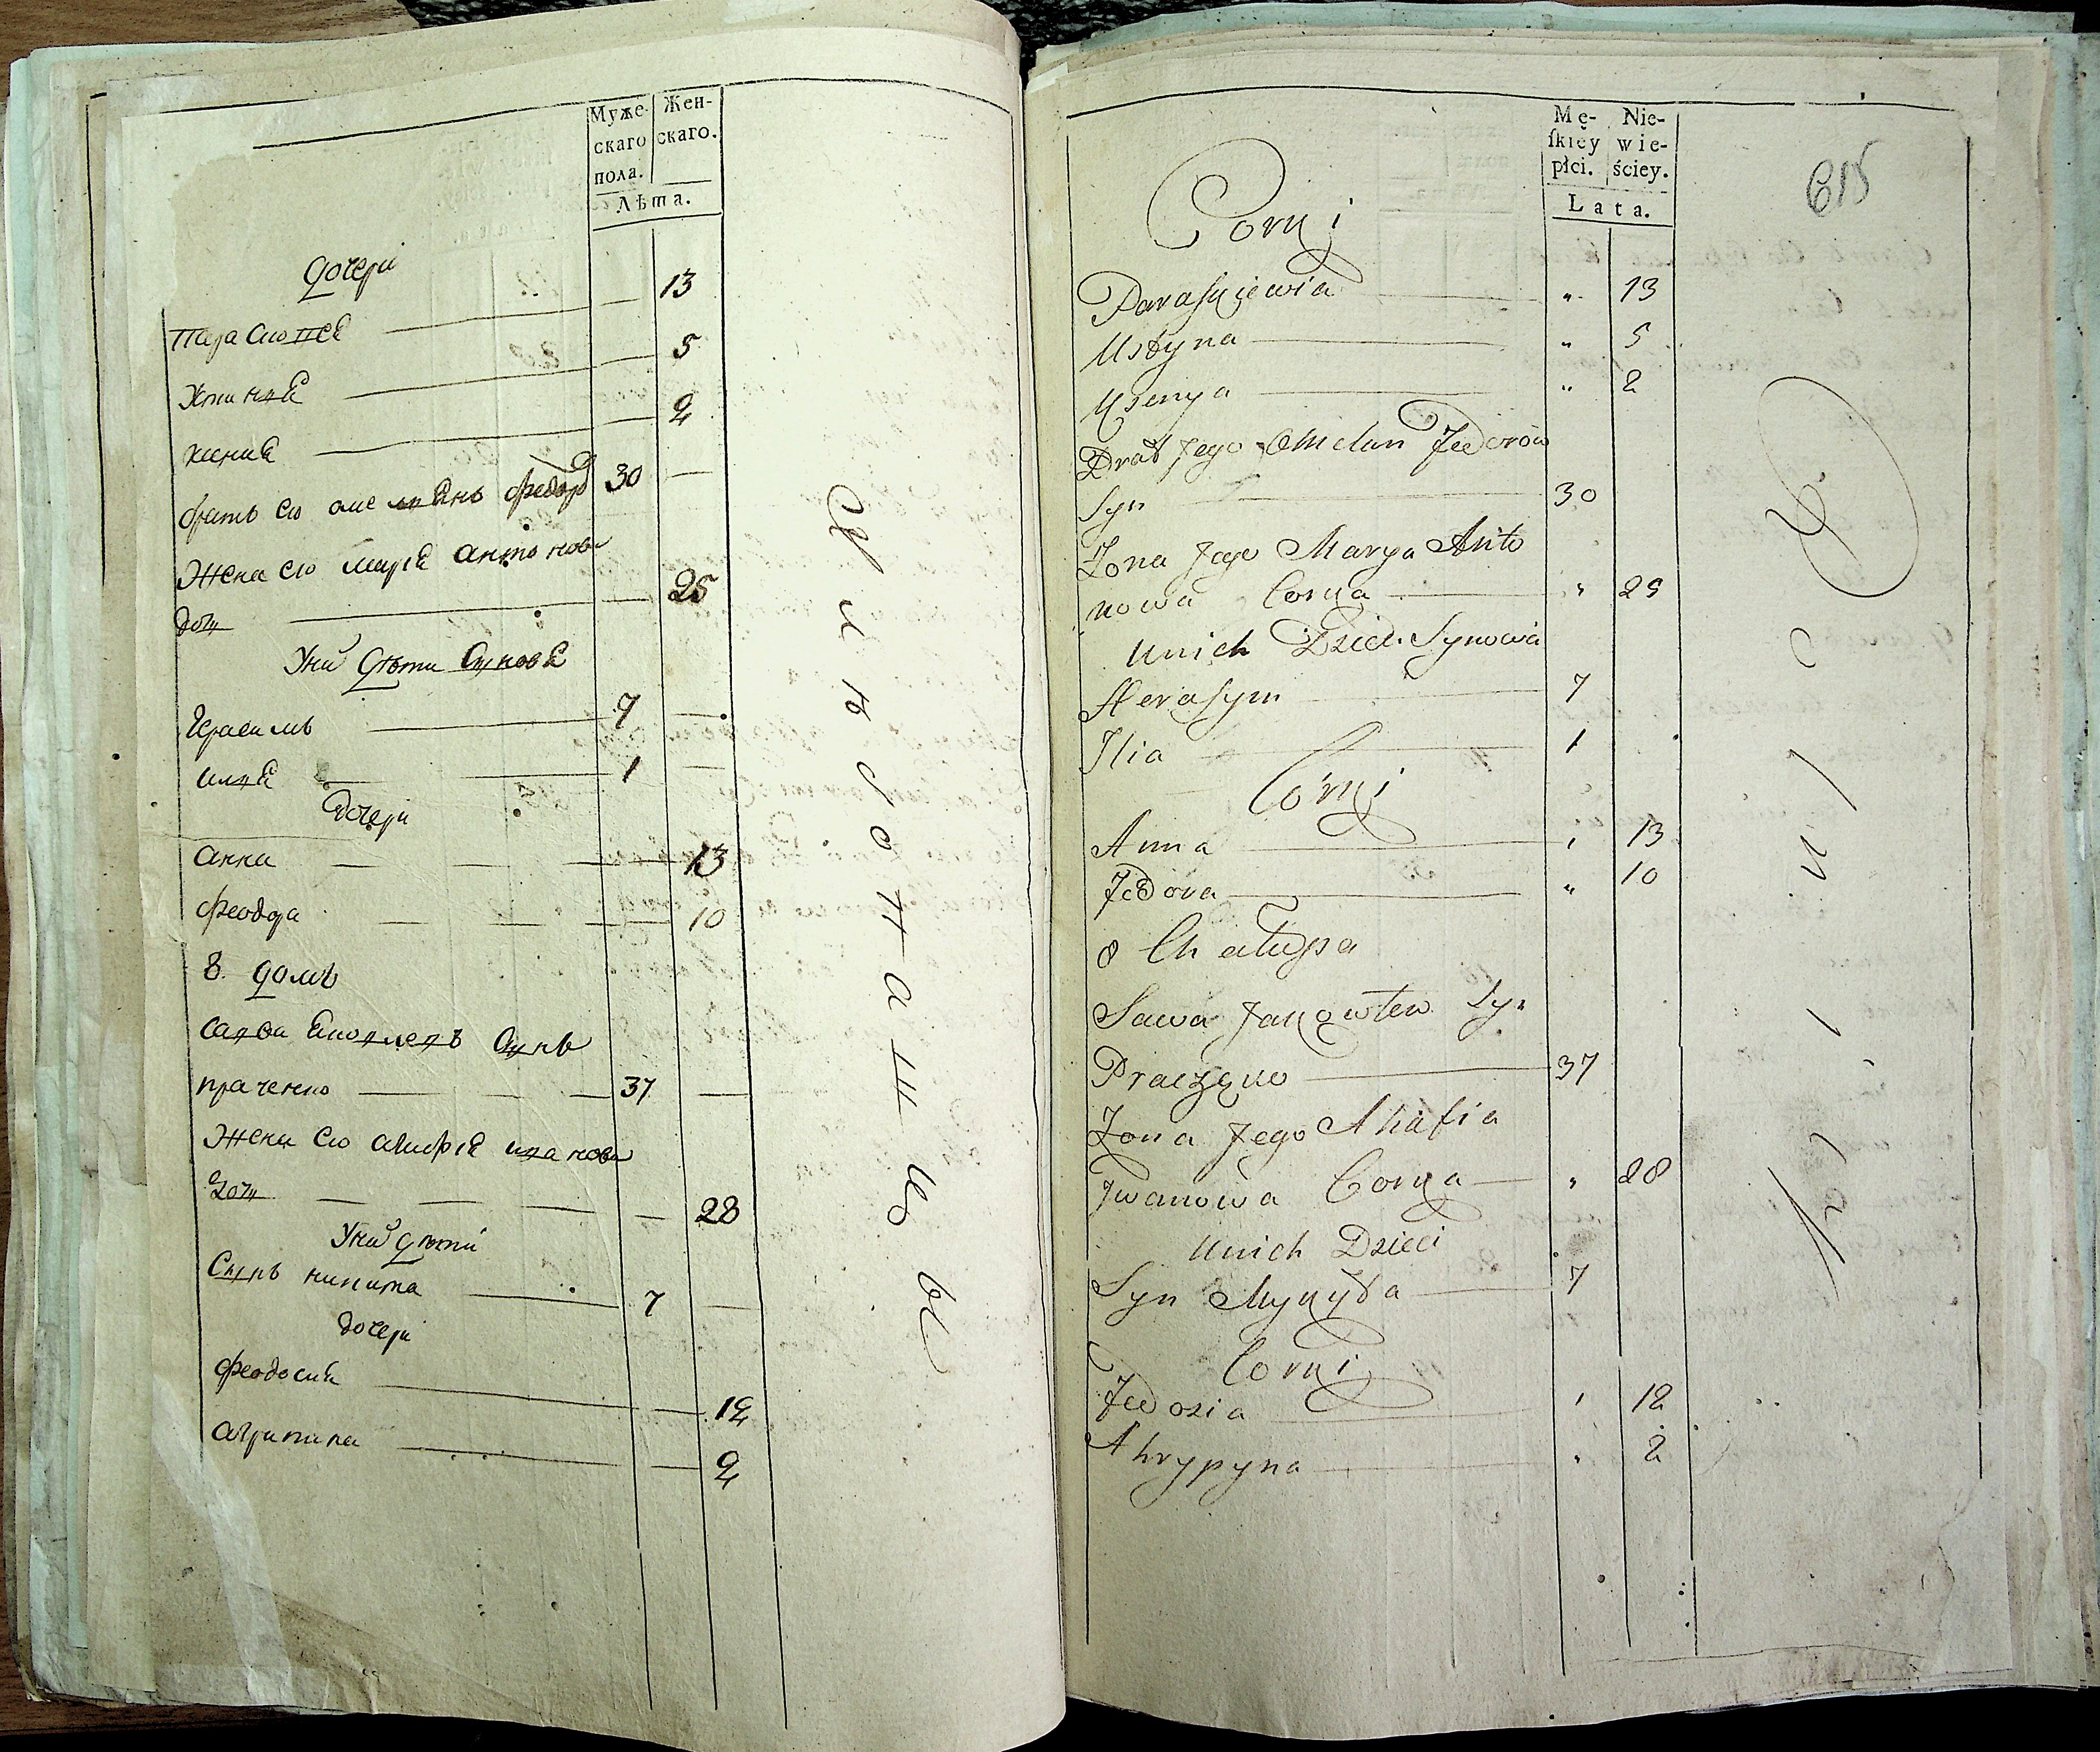 Муже-
скаго
пола.
Жен-
скаго.
Лѣта.
Дочери
Параскевiя 13
Устинья 5
ксения 2
братъ его омельянъ федоровъ 30
Жена его марiя антонова
дочь 25
У них дѣти Сыновья
Герасимъ 7
илья 1
дочери
анна 13
феодора 10
8. домъ
савва Яковлевъ Сынъ
праченко 37
Жена его агафiя иванова
дочь 28
У них дѣти
Сынъ никита 7
дочери
феодосия 12
агрипина 2
Мę-
skiey
płci.
Nie-
wie-
ściey.
Lata.
615
Corki
Paraskiewia " 13
Ustyna " 5
Ksenya " 2
Brat Jego Omelan Fedorow
Syn 30
Zona Jego Marya Anto
nowa Corka " 25
Unich Dzieci Synowia
Herasym 7
Ilia 1
Córki
Anna " 13
Fedora " 10
8 Chalupa
Sawa Jakowlew Syn
Praczęko 37
Zona Jego Ahafia
Jwanowa Corka " 28
Unich Dzieci
Syn Mykyta 7
Corki
Fedosia " 12
Ahrypyna " 2